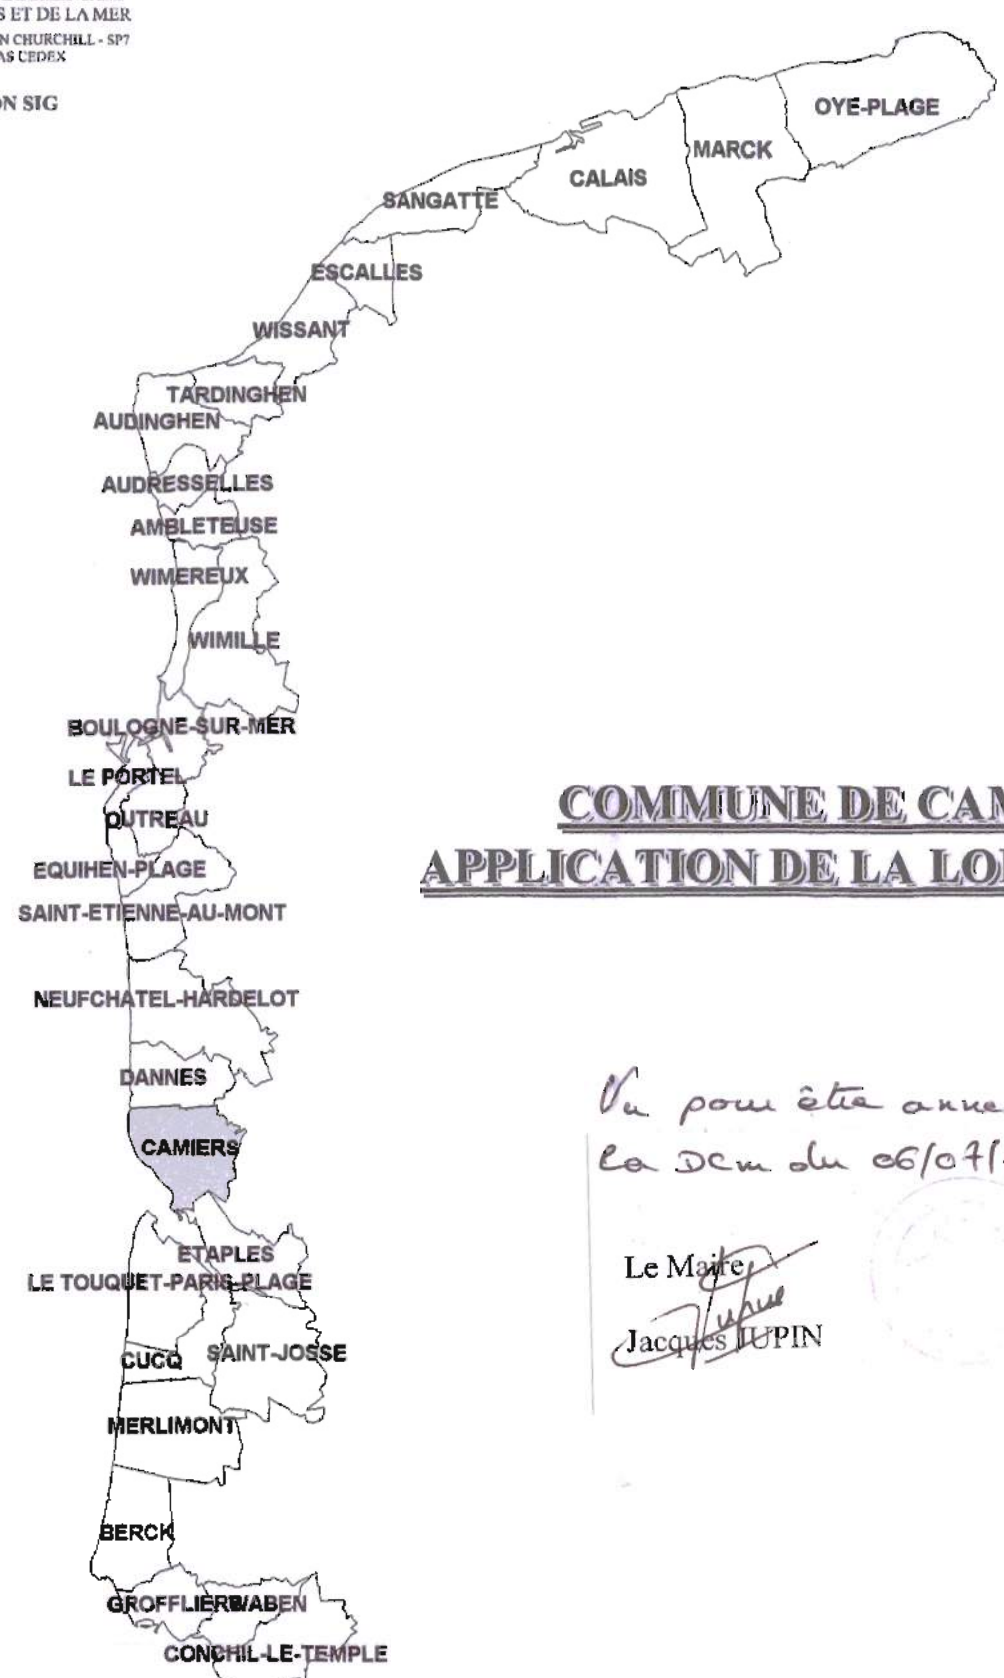 ET DE LA MER
N CHURCHILL - SP7
AS CEDEX
ON SIG
OYE-PLAGE
MARCK
CALAIS
SANGATTE
ESCALLES
WISSANT
TARDINGHEN
AUDINGHEN
AUDRESSELLES
AMBLETEUSE
WIMEREUX
WIMILLE
BOULOGNE-SUR-MER
LE PORTEL
OUTREAU
EQUIHEN-PLAGE
SAINT-ETIENNE-AU-MONT
NEUFCHATEL-HARDELOT
DANNES
CAMIERS
ETAPLES
LE TOUQUET-PARIS-PLAGE
CUCQ
SAINT-JOSSE
MERLIMONT
BERCK
GROFFLIERS
WABEN
CONCHIL-LE-TEMPLE
COMMUNE DE CAM
APPLICATION DE LA LOI
Vu pour être anne
la DCM du 06/07/
Le Maire
Jacques JUPIN